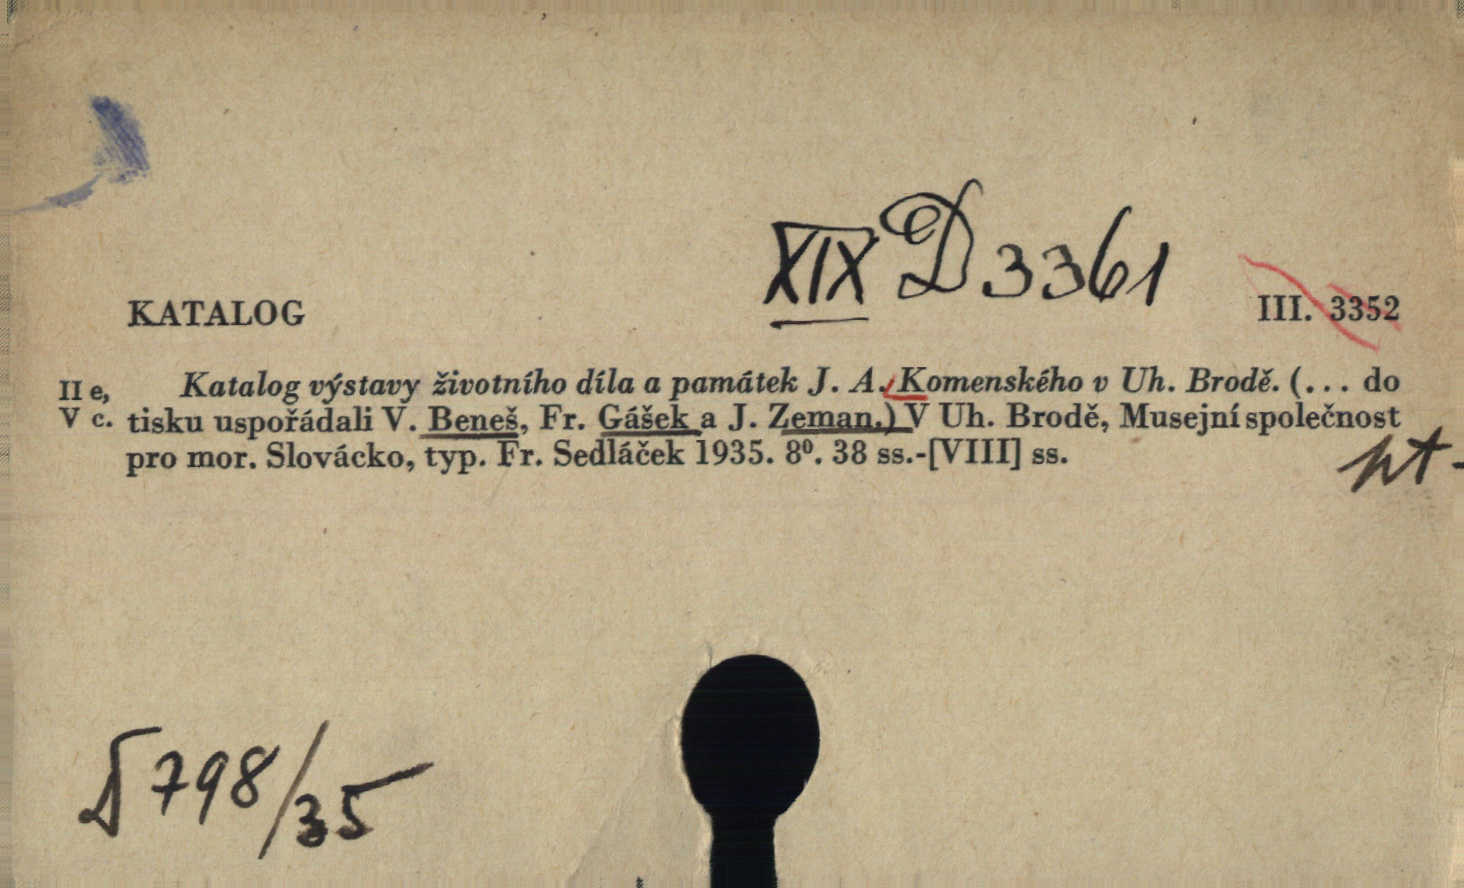 XIX D 3361
KATALOG III. 3352
II e, Katalog výstavy životního díla a památek J. A. Komenského v Uh. Brodě. (... do
V c. tisku uspořádali V. Beneš, Fr. Gášek a J. Zeman.) V Uh. Brodě, Musejní společnost
pro mor. Slovácko, typ. Fr. Sedláček 1935. 8⁰. 38 ss.-[VIII] ss.
798/35